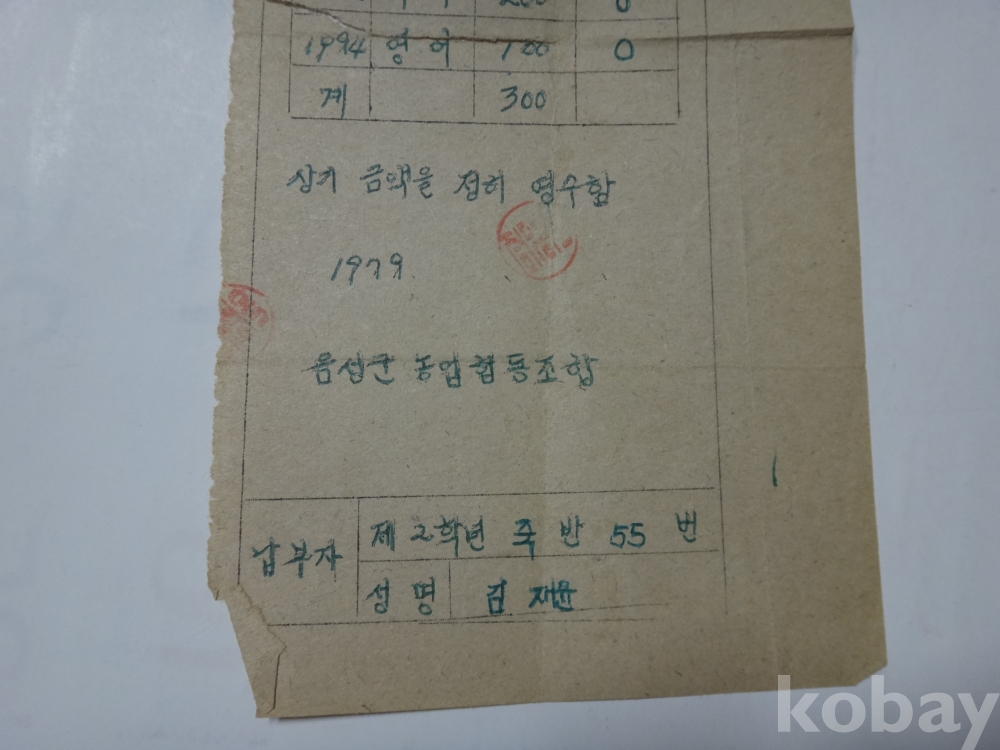 200 0
1994 영어 100 0
계 300
상기 금액을 정히 영수함
1979
음성군 농업협동조합
납부자 제2학년 죽 반 55 번
성명 김재윤
kobay